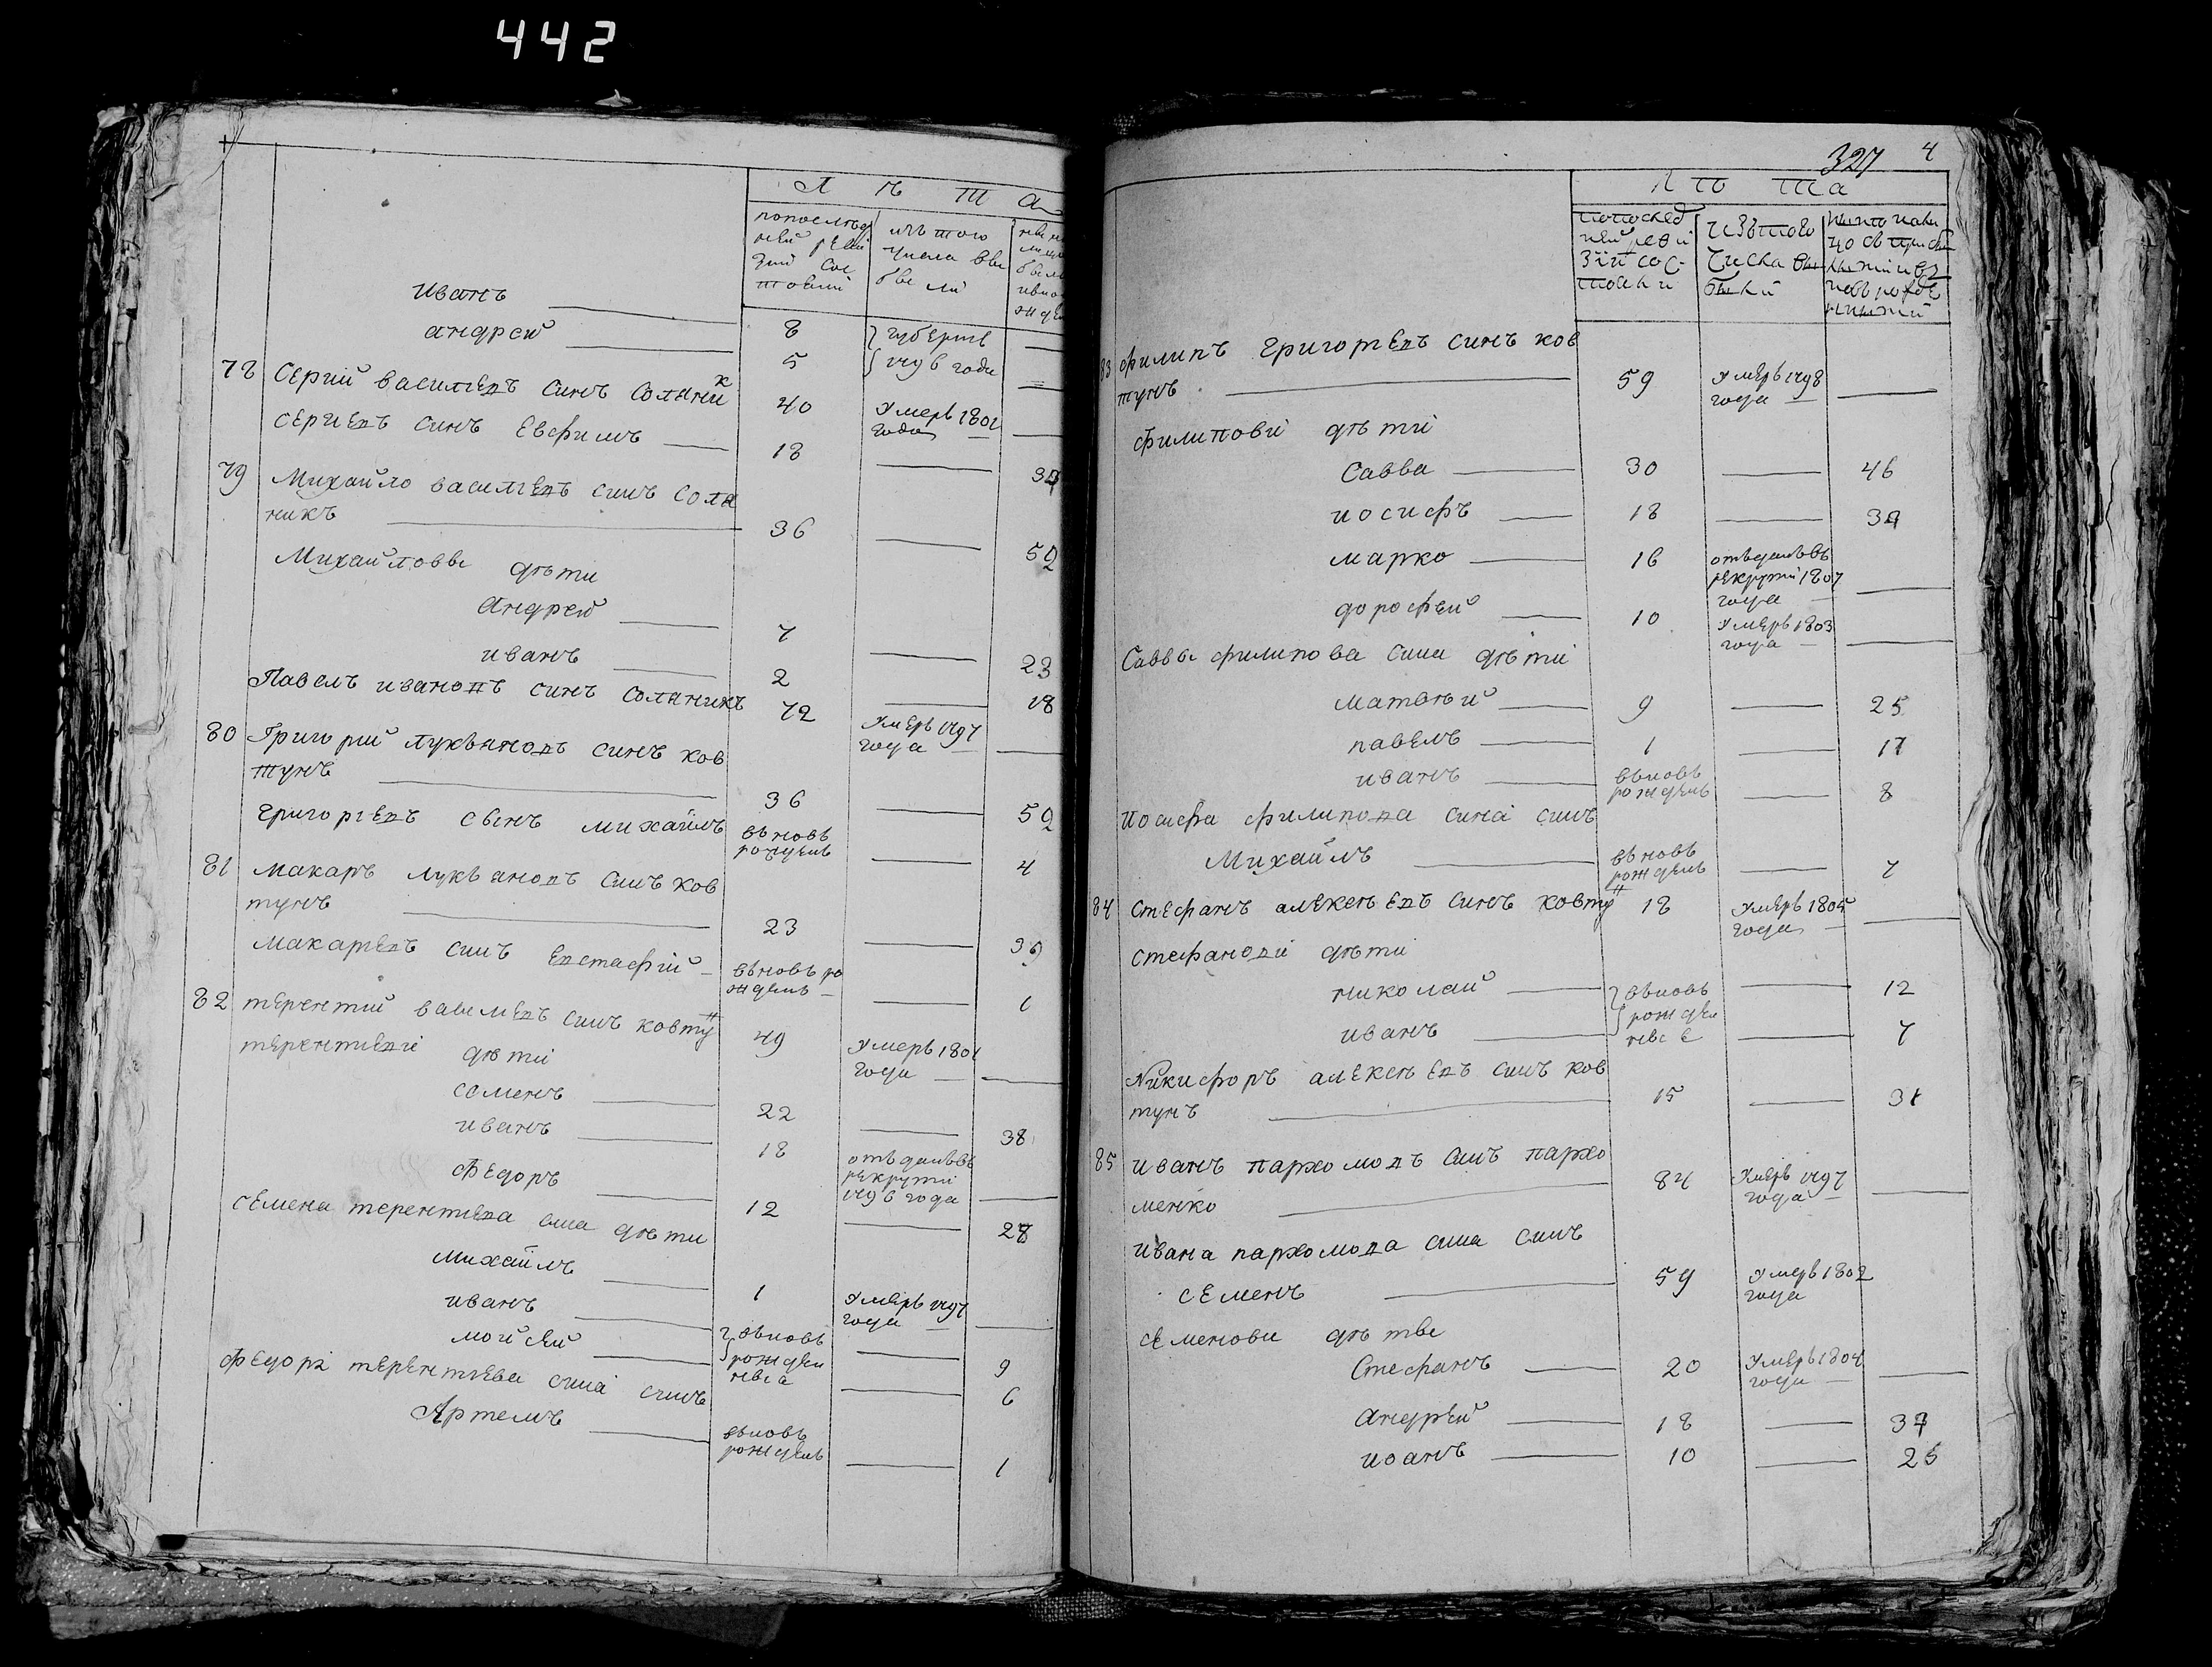 442
Л ѣ т а
попослѣд
ней реви
зии сос
тояли
изъ того
числа вы
бы ли
иванъ
8
губернѣ
андрей
5
1796 годи
78 Сергий василиевъ синъ соляник
40
Умеръ 1801
года
Сергиевъ синъ Евфимъ
18
34
79 Михайло василиевъ синъ соля
никъ
36
52
Михайловы дѣти
Андрей
7
23
иванъ
2
18
Павелъ ивановъ синъ соляникъ
72
Умеръ 1797
года
80 Григорий лукъяновъ синъ ков
тунъ
36
52
григориевъ сынъ михайлъ
въновь
рожденъ
4
81 макаръ лукъяновъ синъ ков
тунъ
23
39
макариевъ синъ Евстафий
въновь ро
жденъ
1
82 терентий василиевъ синъ ковтун
49
Умеръ 1801
года
терентиеві дѣти
семенъ
22
38
иванъ
18
отъданъвъ
рекрути
1796 года
Федоръ
12
28
семена терентиева сина дѣти
михайлъ
1
Умеръ 1797
года
иванъ
въновь
рожден
ные
9
мойсей
6
Федора терентиева сина синъ
Артемъ
въновь
рожденъ
1
327 4
Л ѣ та
попослед
ней реви
зіи сос
тояли
изътого
числа вы
были
83 филипъ григориевъ синъ ков
тунъ
59
Умеръ 1798
года
филипові дѣти
савва
30
46
иосифъ
18
34
марко
16
отъданъвъ
рекруті 1807
года
дорофей
10
Умеръ 1803
года
Саввы филипова сина дѣти
матвѣй
9
25
павелъ
1
17
иванъ
въновь
рожденъ
8
Иосифа филипова сина синъ
Михайлъ
въновь
рожденъ
7
84 стефанъ алексѣевъ синъ ковтун
18
Умеръ 1805
года
стефанові дѣти
николай
въновь
рожден
ные
12
иванъ
7
Никифоръ алексѣевъ синъ ков
тунъ
15
31
85 иванъ пархомовъ синъ пархо
менко
84
Умеръ 1797
года
ивана пархомова сина синъ
семенъ
59
Умеръ 1802
года
семенови дѣты
Стефанъ
20
Умеръ 1804
года
андрей
18
34
иоанъ
10
26